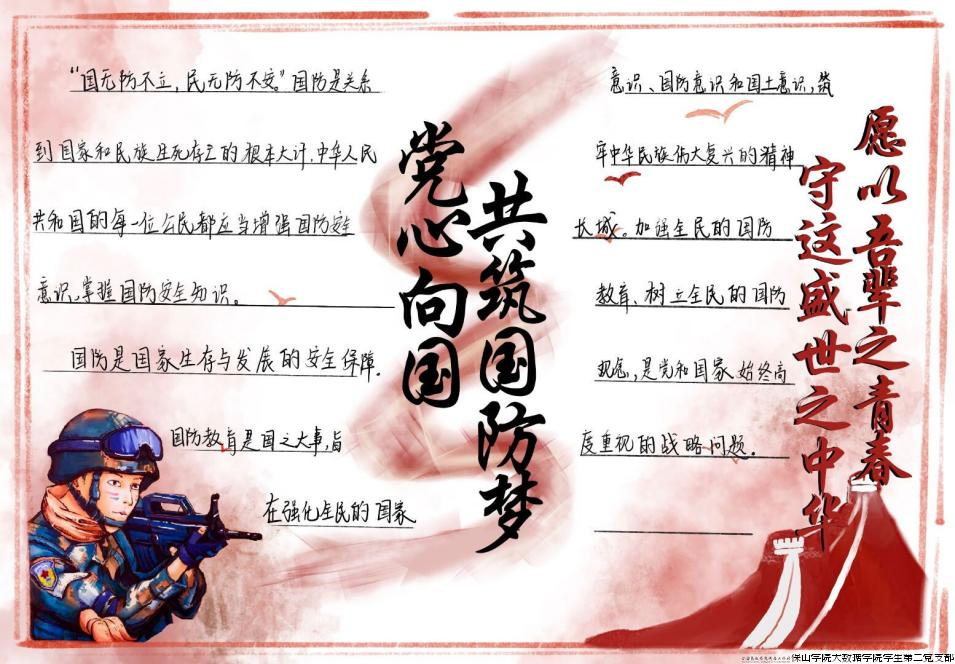 “国无防不立，民无防不安。”国防是关系
到国家和民族生死存亡的根本大计，中华人民
共和国的每一位公民都应当增强国防安全
意识，掌握国防安全知识。
国防是国家生存与发展的安全保障。
国防教育是国之大事，旨
在强化全民的国家
党心向国
共筑国防梦
意识、国防意识和国土意识，筑
牢中华民族伟大复兴的精神
长城。加强全民的国防
教育、树立全民的国防
观念，是党和国家始终高
度重视的战略问题。
愿以吾辈之青春
守这盛世之中华
保山学院大数据学院学生第二党支部